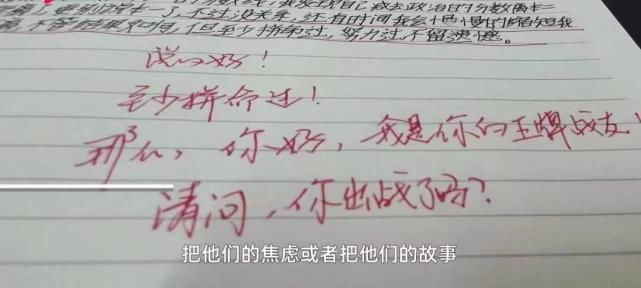 不过没关系，还有时间我会慢慢的缩短我
不管结果如何，但至少拼命过，努力过不留遗憾。
说的好！
至少拼命过！
那么，你好，我是你的王牌战友！
请问，你出战了吗？
把他们的焦虑或者把他们的故事